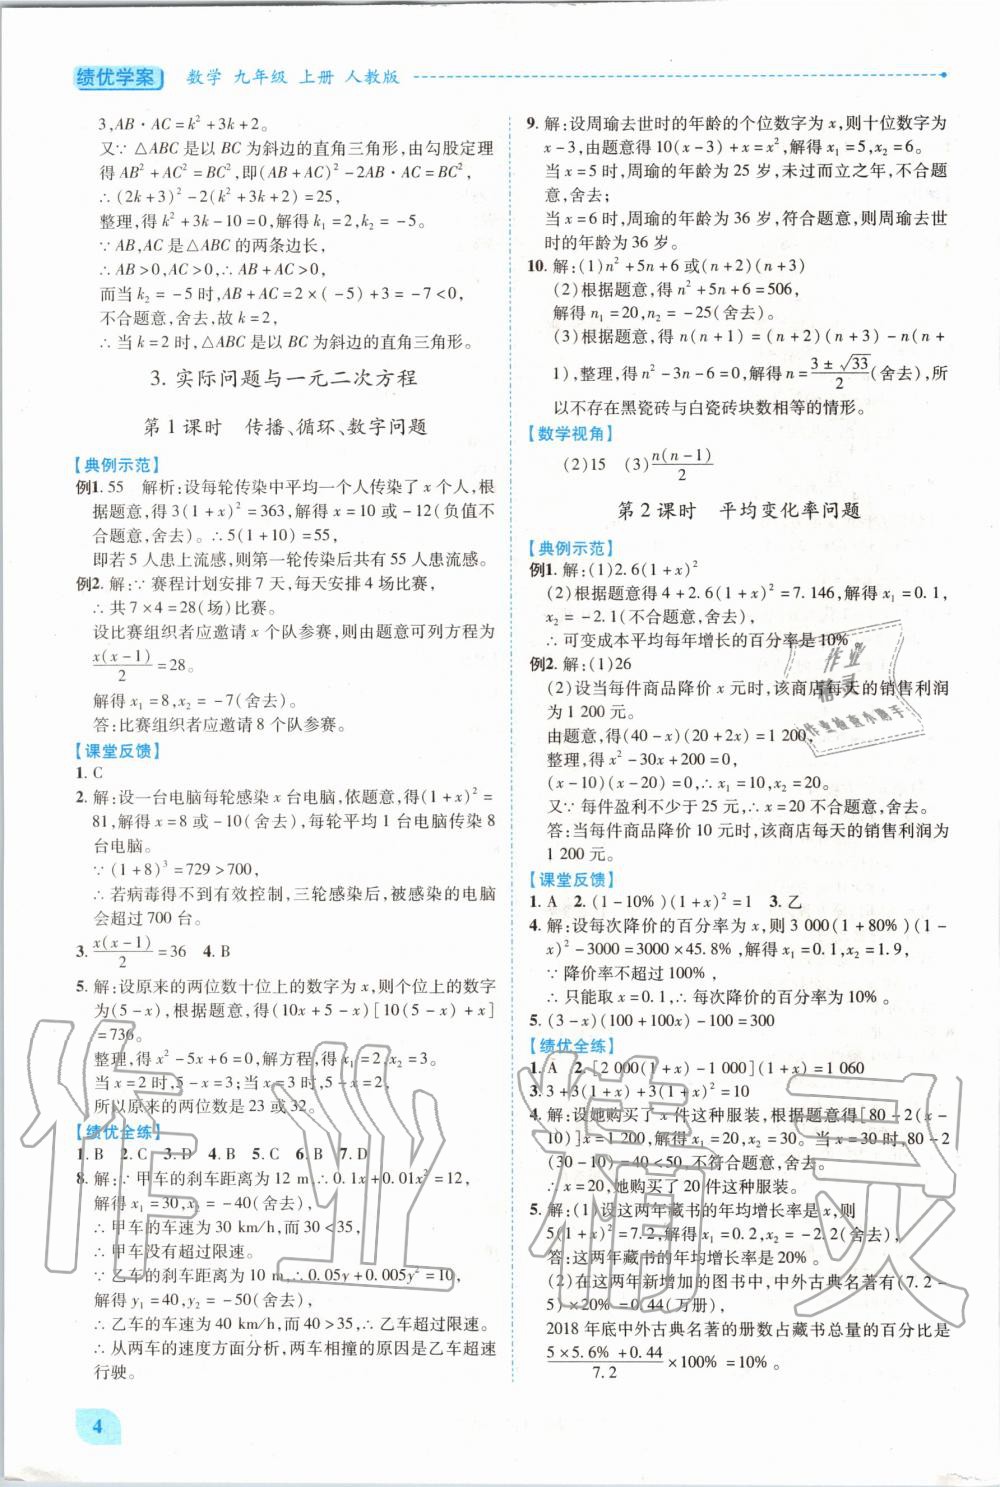 绩优学案 数学 九年级 上册 人教版
3,AB·AC=k²+3k+2。
又∵△ABC是以BC为斜边的直角三角形,由勾股定理
得AB²+AC²=BC²,即(AB+AC)²-2AB·AC=BC²,
∴(2k+3)²-2(k²+3k+2)=25,
整理,得k²+3k-10=0,解得k₁=2,k₂=-5。
∵AB,AC是△ABC的两条边长,
∴AB>0,AC>0,∴AB+AC>0;
而当k₂=-5时,AB+AC=2×(-5)+3=-7<0,
不合题意,舍去,故k=2,
∴当k=2时,△ABC是以BC为斜边的直角三角形。
3.实际问题与一元二次方程
第1课时 传播、循环、数字问题
【典例示范】
例1.55 解析:设每轮传染中平均一个人传染了x个人,根
据题意,得3(1+x)²=363,解得x=10或-12(负值不
合题意,舍去)。∴5(1+10)=55,
即若5人患上流感,则第一轮传染后共有55人患流感。
例2.解:∵赛程计划安排7天,每天安排4场比赛,
∴共7×4=28(场)比赛。
设比赛组织者应邀请x个队参赛,则由题意可列方程为
x(x-1)/2=28。
解得x₁=8,x₂=-7(舍去)。
答:比赛组织者应邀请8个队参赛。
【课堂反馈】
1.C
2.解:设一台电脑每轮感染x台电脑,依题意,得(1+x)²=
81,解得x=8或-10(舍去),每轮平均1台电脑传染8
台电脑。
∵(1+8)³=729>700,
∴若病毒得不到有效控制,三轮感染后,被感染的电脑
会超过700台。
3.x(x-1)/2=36 4.B
5.解:设原来的两位数十位上的数字为x,则个位上的数字
为(5-x),根据题意,得(10x+5-x)[10(5-x)+x]
=736。
整理,得x²-5x+6=0,解方程,得x₁=2,x₂=3。
当x=2时,5-x=3;当x=3时,5-x=2,
所以原来的两位数是23或32。
【绩优全练】
1.B 2.C 3.D 4.B 5.C 6.B 7.D
8.解:∵甲车的刹车距离为12 m,∴0.1x+0.01x²=12,
解得x₁=30,x₂=-40(舍去),
∴甲车的车速为30 km/h,而30<35,
∴甲车没有超过限速。
∵乙车的刹车距离为10 m,∴0.05y+0.005y²=10,
解得y₁=40,y₂=-50(舍去),
∴乙车的车速为40 km/h,而40>35,∴乙车超过限速。
∴从两车的速度方面分析,两车相撞的原因是乙车超速
行驶。
4
9.解:设周瑜去世时的年龄的个位数字为x,则十位数字为
x-3,由题意得10(x-3)+x=x²,解得x₁=5,x₂=6。
当x=5时,周瑜的年龄为25岁,未过而立之年,不合题
意,舍去;
当x=6时,周瑜的年龄为36岁,符合题意,则周瑜去世
时的年龄为36岁。
10.解:(1)n²+5n+6或(n+2)(n+3)
(2)根据题意,得n²+5n+6=506,
解得n₁=20,n₂=-25(舍去)。
(3)根据题意,得n(n+1)=(n+2)(n+3)-n(n+
1),整理,得n²-3n-6=0,解得n=(3±√33)/2(舍去),所
以不存在黑瓷砖与白瓷砖块数相等的情形。
【数学视角】
(2)15 (3)n(n-1)/2
第2课时 平均变化率问题
【典例示范】
例1.解:(1)2.6(1+x)²
(2)根据题意得4+2.6(1+x)²=7.146,解得x₁=0.1,
x₂=-2.1(不合题意,舍去),
∴可变成本平均每年增长的百分率是10%
例2.解:(1)26
(2)设当每件商品降价x元时,该商店每天的销售利润
为1 200元。
由题意,得(40-x)(20+2x)=1 200,
整理,得x²-30x+200=0,
(x-10)(x-20)=0,∴x₁=10,x₂=20。
又∵每件盈利不少于25元,∴x=20不合题意,舍去。
答:当每件商品降价10元时,该商店每天的销售利润为
1 200元。
【课堂反馈】
1.A 2.(1-10%)(1+x)²=1 3.乙
4.解:设每次降价的百分率为x,则3 000(1+80%)(1-
x)²-3000=3000×45.8%,解得x₁=0.1,x₂=1.9,
∵降价率不超过100%,
∴只能取x=0.1,∴每次降价的百分率为10%。
5.(3-x)(100+100x)-100=300
【绩优全练】
1.A 2.[2 000(1+x)-1 000](1+x)=1 060
3.3+3(1+x)+3(1+x)²=10
4.解:设她购买了x件这种服装,根据题意得[80-2(x-
10)]x=1 200,解得x₁=20,x₂=30。当x=30时,80-2
(30-10)=40<50,不合题意舍去;
∴x=20,她购买了20件这种服装。
5.解:(1)设这两年藏书的年均增长率是x,则
5(1+x)²=7.2,解得x₁=0.2,x₂=-2.2(舍去)。
答:这两年藏书的年均增长率是20%。
(2)在这两年新增加的图书中,中外古典名著有(7.2-
5)×20%=0.44(万册),
2018年底中外古典名著的册数占藏书总量的百分比是
(5×5.6%+0.44)/7.2×100%=10%。
作业
精灵
作业检查小助手
作业精灵